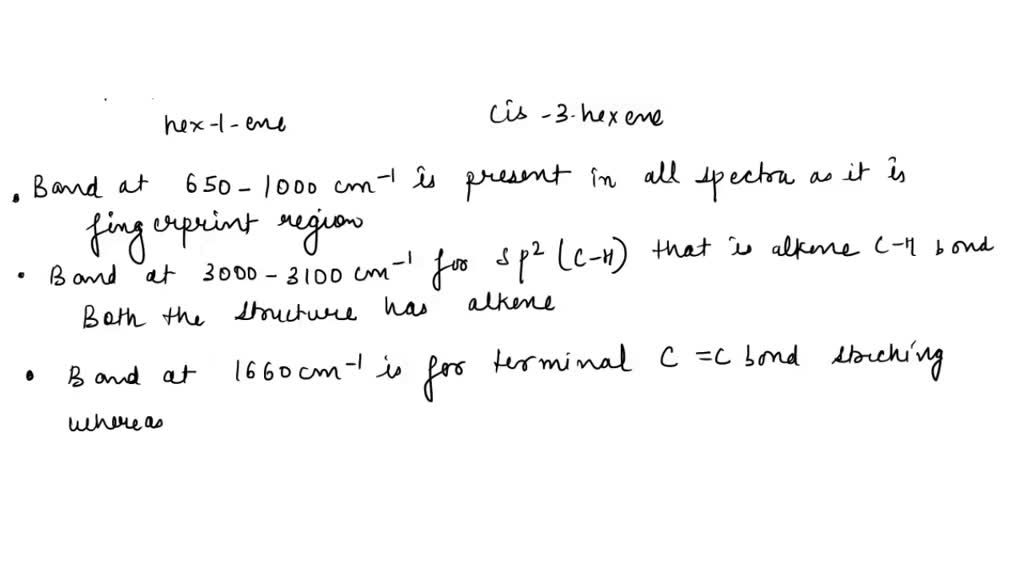 hex-1-ene cis-3-hexene
• Band at 650-1000 cm⁻¹ is present in all spectra as it is
fingerprint region
• Band at 3000-3100 cm⁻¹ for sp² (C-H) that is alkene C-H bond
Both the structure has alkene
• Band at 1660 cm⁻¹ is for terminal C=C bond streching
whereas